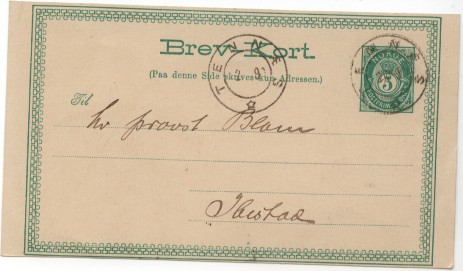 Brev-Kort.
(Paa denne Side skrives kun Adressen.)
TENNES
TENNES
NORGE
5
Til
Hr provst Blom
Ibestad